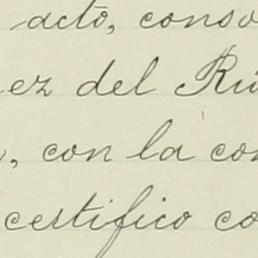 acto, conso
ez del Rú
, con la con
certifico co